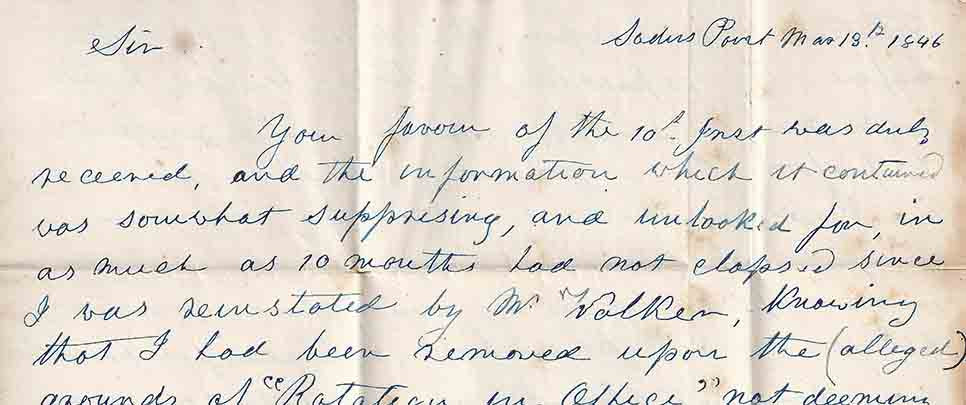 Sir Sodus Point Mar 19th 1846
Your favour of the 10th Inst was duly
received, and the information which it contained
was somwhat suppresing, and unlooked for, in
as much as 10 months had not elapsed since
I was reinstated by Mr Walker, Knowing
that I had been removed upon the (alleged)
grounds of "Rotation in Office" not deeming